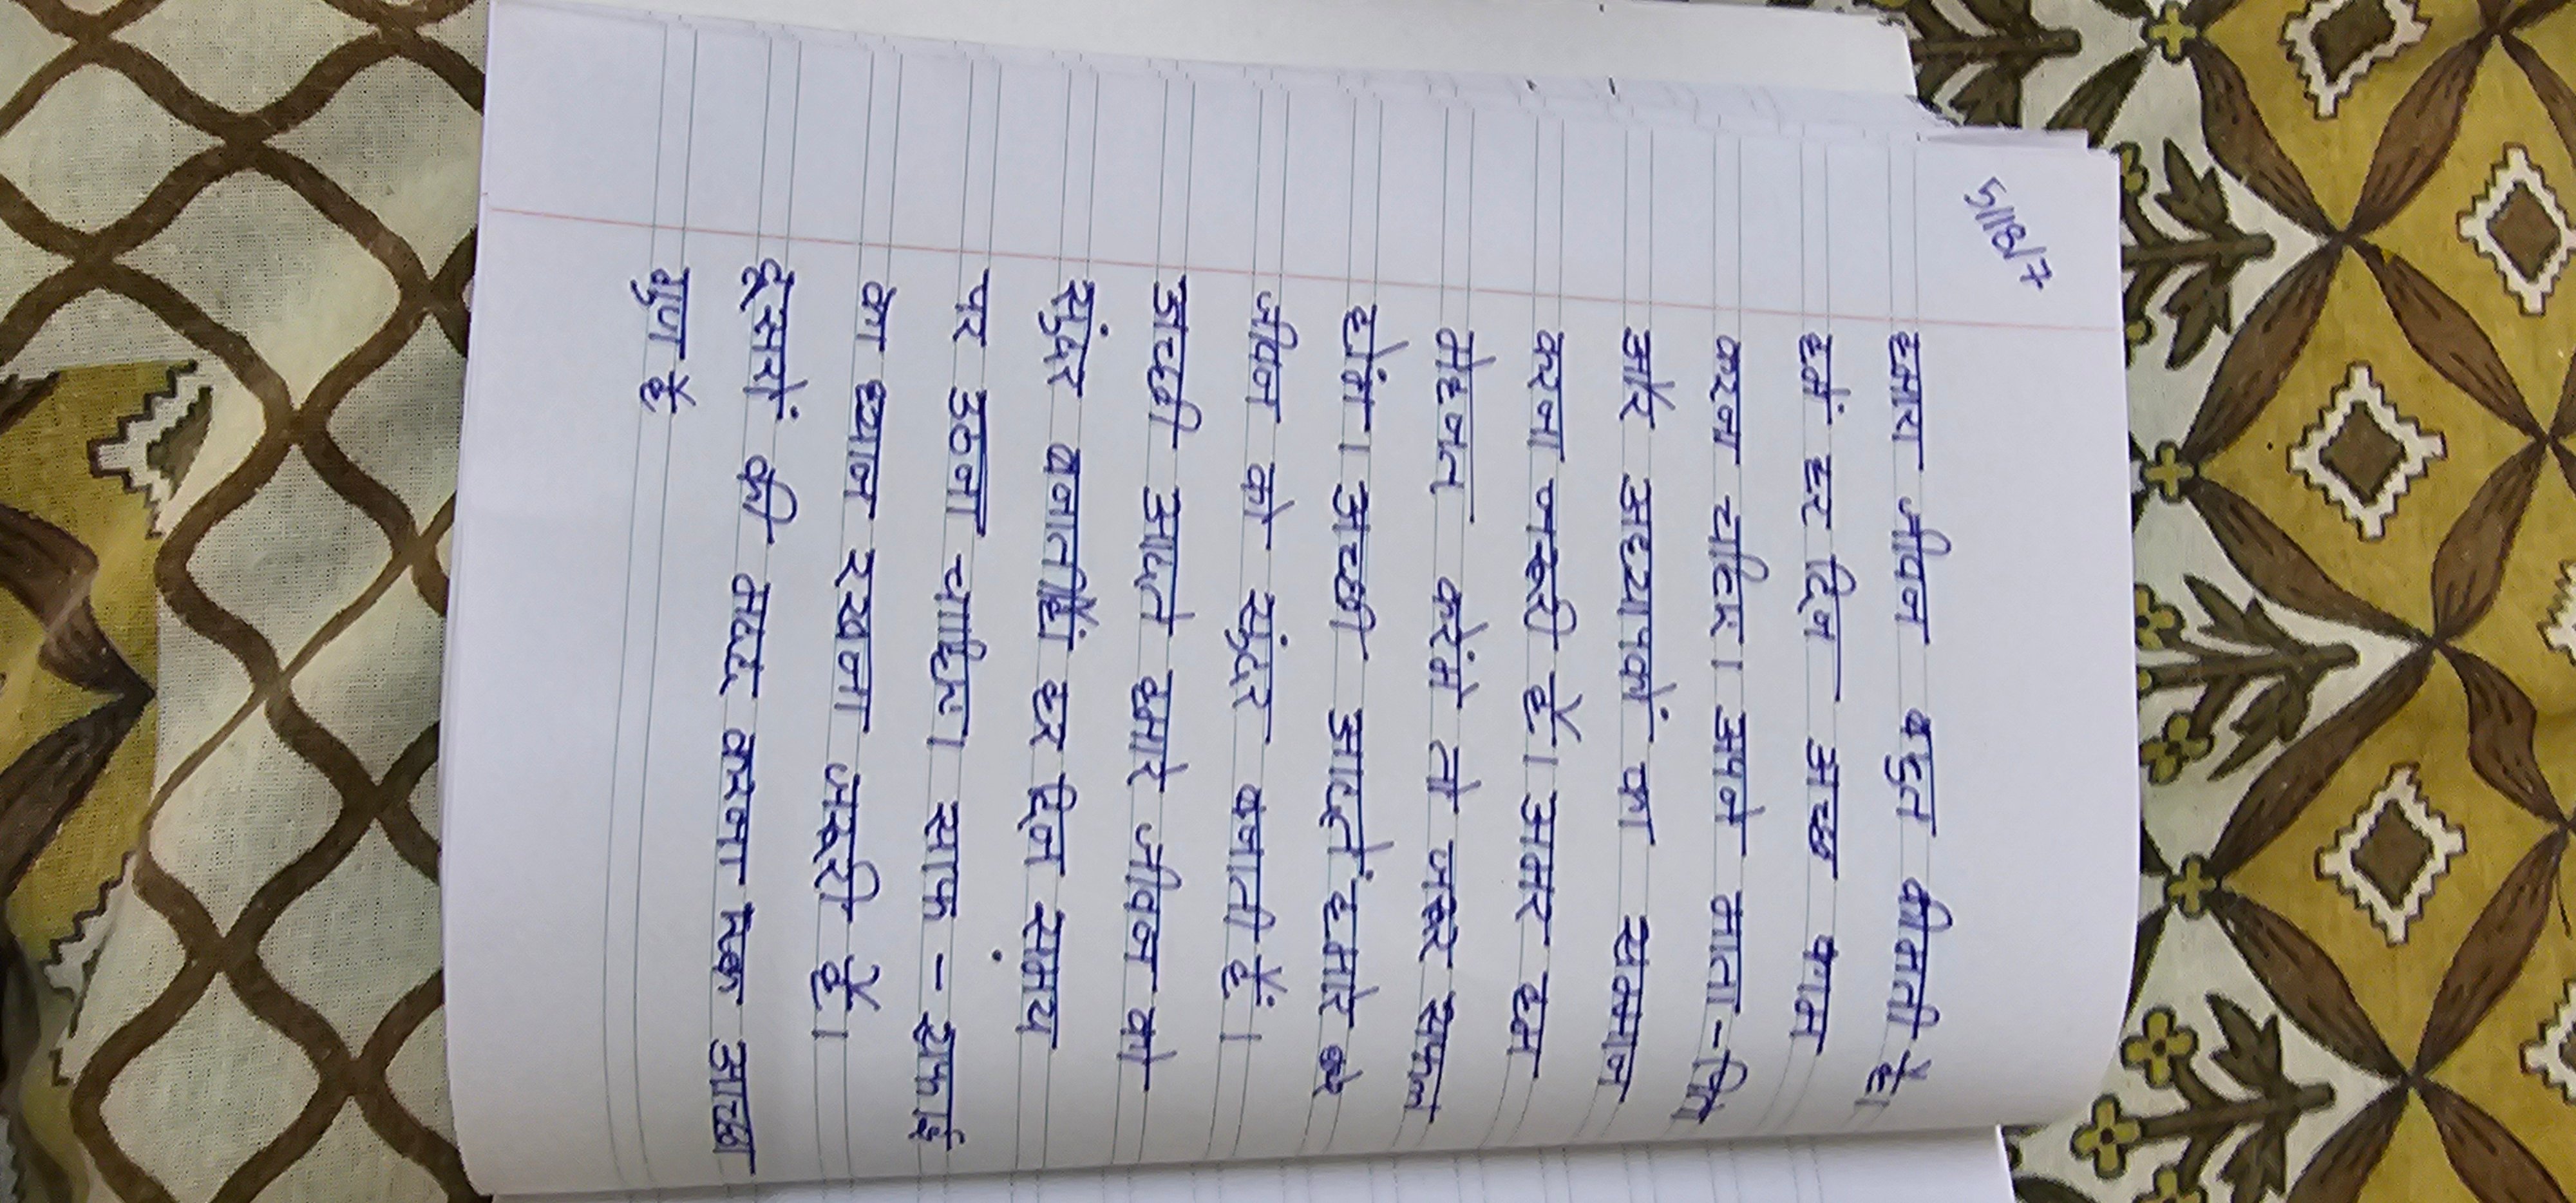 5/18/7
हमारा जीवन बहुत कीमती है।
हमें हर दिन अच्छ काम
करना चहिए। अपने माता-पिता
और अध्यापकों का सम्मान
करना जरूरी है। अगर हम
मेहनत करेंगे तो जरूर सफल
होंगे। अच्छी आदतें हमारे
जीवन को सुंदर बनाती हैं।
अच्छी आदते हमारे जीवन को
सुंदर बनातीहैं हर दिन समय
पर उठना चाहिए। साफ-सफाई
का ध्यान रखना जरूरी हैं।
दूसरों की मदद करना एक अच्छा
गुण है